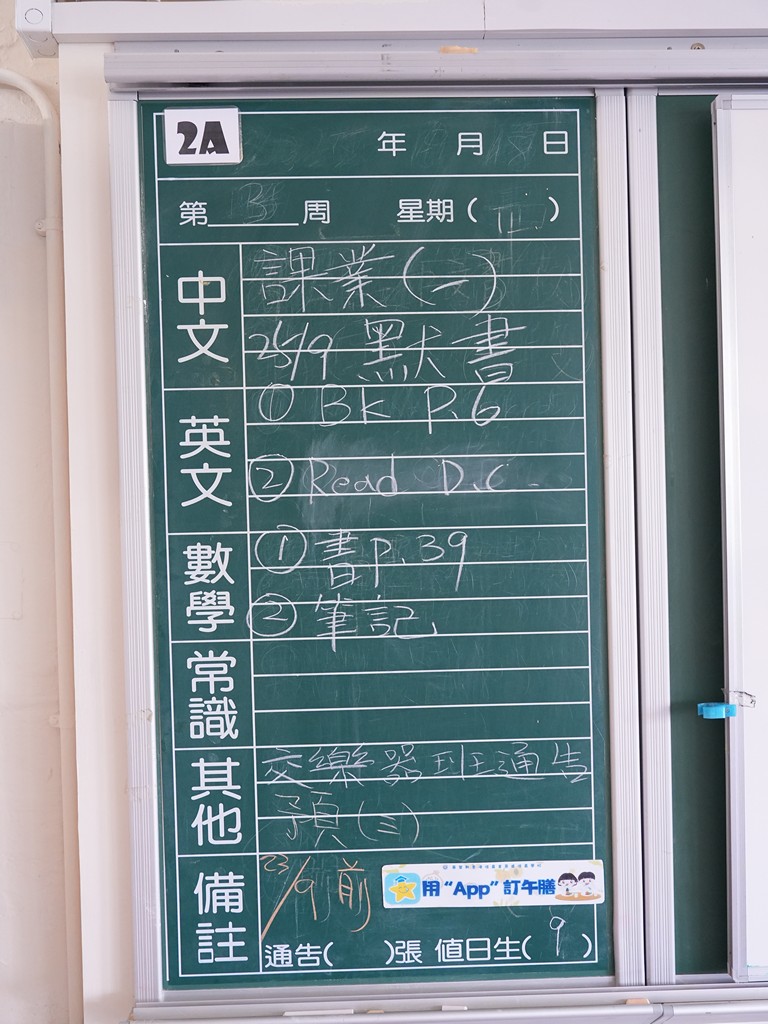 2A
年 月 日
第 3 周 星期( 四 )
中文
課業(一)
25/9 默書
英文
① BK P.6
② Read D.C.
數學
① 書P.39
② 筆記
常識
其他
交樂器班通告
預(三)
備註
23/9 前
用“App”訂午膳
通告( )張 值日生( 9 )